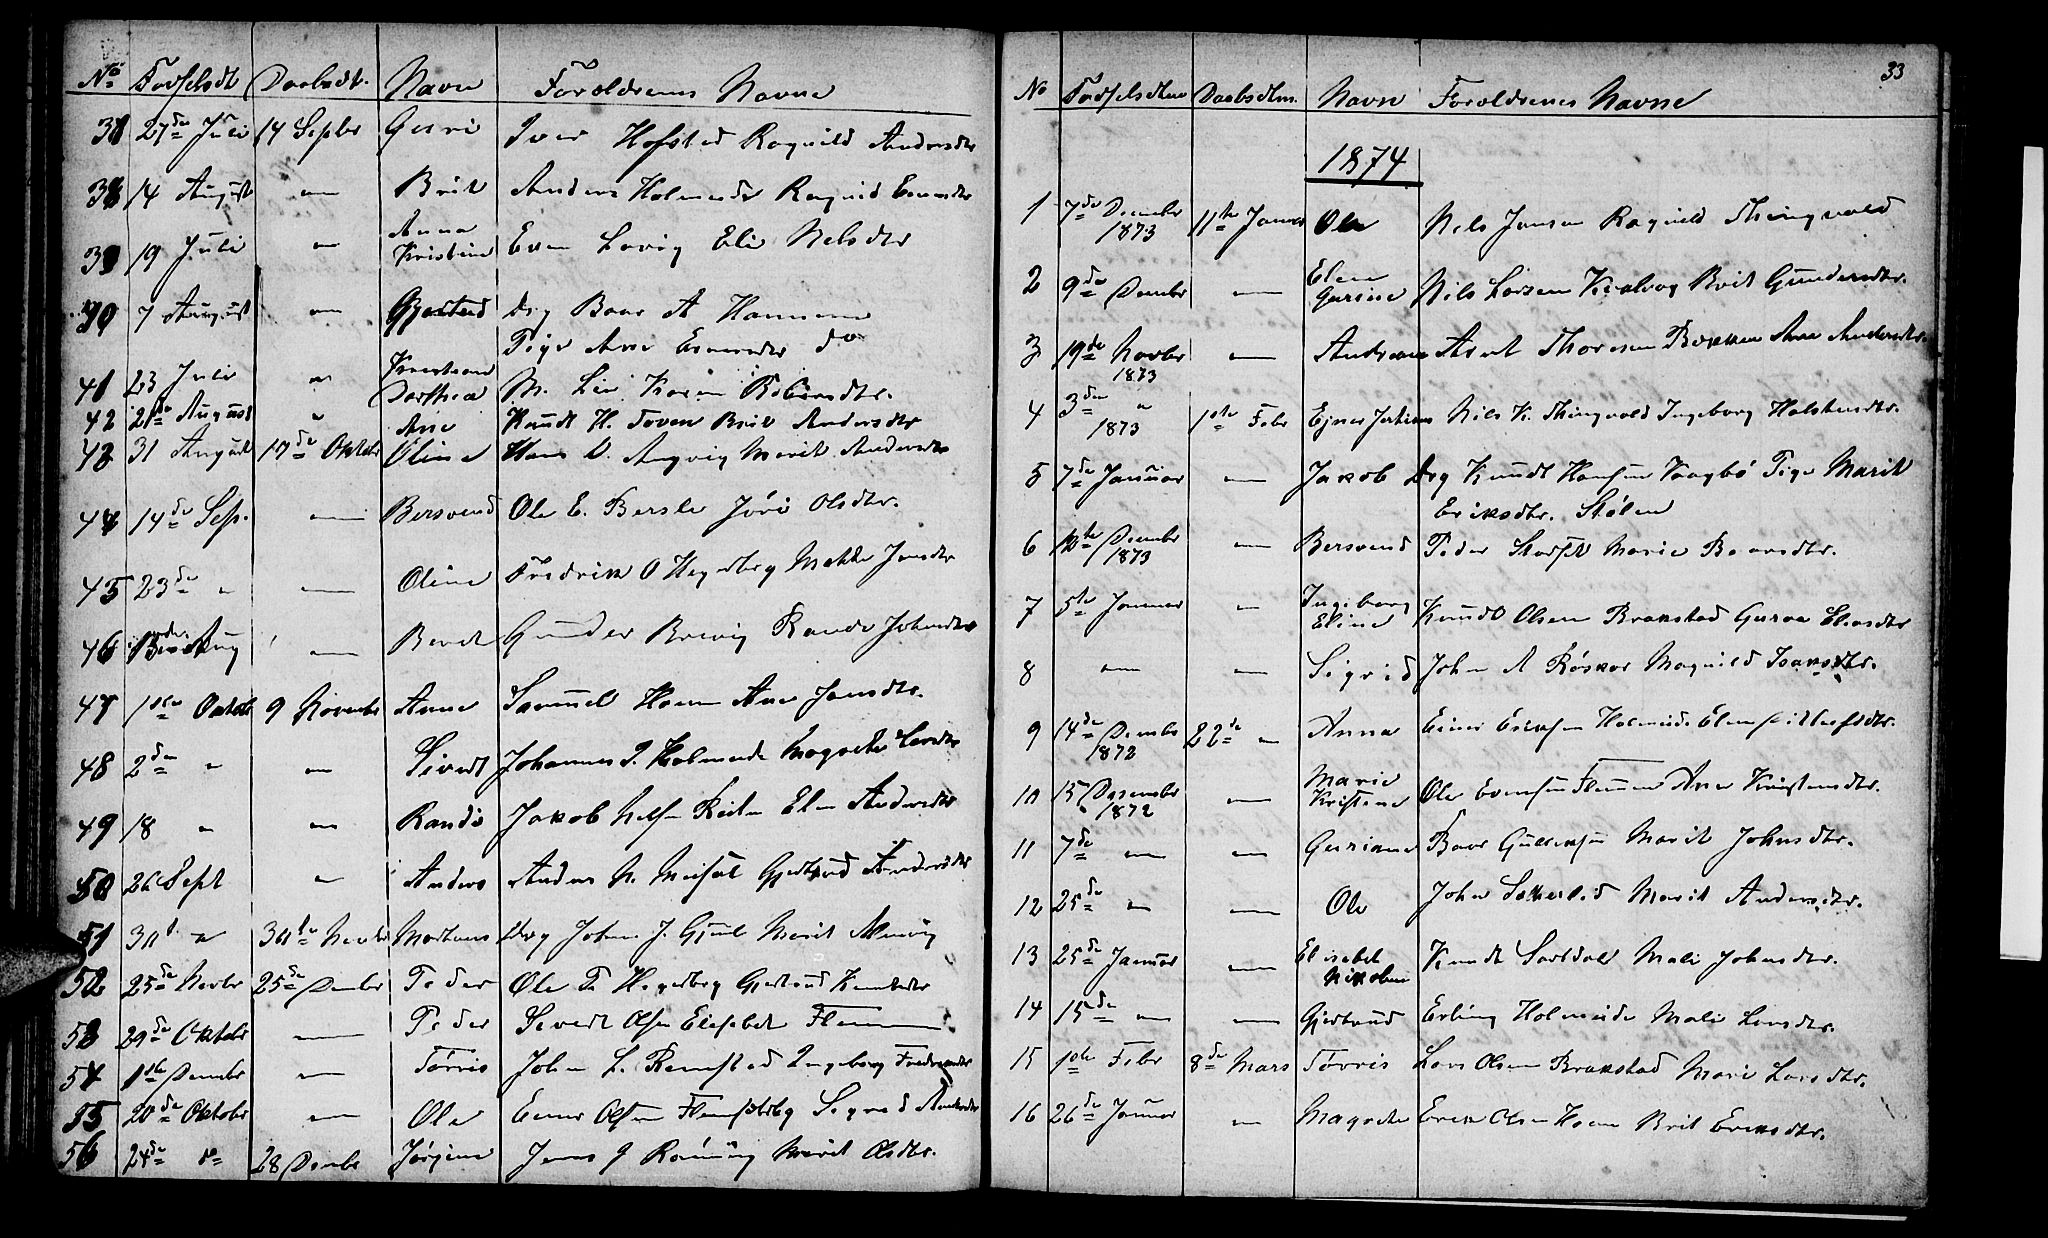 No Fødselsdt Daabsdt. Navn Forældrenes Navne
38 27de Juli 14 Septbr Guri Iver Hofstad Ragnild Andersdtr
38 14 August — Brit Anders Holmeide Ragnild
39 19 Juli — Anna Kristine Even Lervig Eli Nelsdtr
40 7 August — Gjertrud Ung Baar A Hansen
Pige Ane do
41 23 Juli " Dorthea M. Lie Karen
42 21de August " Ane Knudt H. Toven Brit Andersdtr
43 31 August 17de Oktobr Oline Hans O. Angvig Marit Andersdtr
44 14de Sep. — Bersvend Ole E. Berslie Jóri Olsdtr.
45 23de " — Oline Fredrik O Hegerberg Mette Jonsdtr
46 Aug — Berit Gunder Brevig Randi Johnsdtr
47 1ste Oktobr 9 Novembr Anne Samuel Hoem Ane Jonsdtr.
48 2den " — Sivert Johannes J. Holmeide Magrethe
49 18 " — Randi Jakob Nelsen Ane Andersdtr
50 26 Sept " Anders Anders N. Meisal Gjertrud Andersdtr
51 30 " 30te Novbr John J. Gjul Marit
52 25de Novbr 25de Decmbr Peder Ole T. Hegerberg Gjertrud Knudsdtr
53 29de Oktobr — Peder Sevrdt Olsen Elesebet Flemmen
54 1ste Decmbr — Tørris John L. Remstad Ingeborg
55 20de Oktobr — Ole Einar Olsen Sigrid Andersdtr
56 24de " 28 Decmbr Jørgine Jens J Rønning Marit Olsdtr.
33
No Fødselsdten Daabsdtn. Navn Forældrenes Navne
1874
1 7de December 1873 11te Januar Ole Nels Jonsen Ragnild Thingvold
2 9de Decmbr — Elen Gurine Nils Larsen Brit Gundersdtr.
3 19de Novbr 1873 — Andreas Thoresen Bakken Ane Andersdtr.
4 3den " 1873 1ste Febr Ejner Nils K. Thingvold Ingeborg Halstensdtr.
5 7de Januar — Jakob Ung Knudt Hansen Vaagbø Pige Marit
Eriksdtr. Stølen
6 12te December 1873 — Bersvend Peder Marie Baarsdtr.
7 5te Januar — Ingeborg Eline Knudt Olsen Brakstad Guroe Eliasdtr
8 — — Sigrid John A Røskar Magnild Isaksdtr.
9 14de Decmbr 1872 22de " Anna Einar Eriksen Holmeide
10 15 December 1872 — Marie Kristine Ole Evensen Flemmen Ane Kristensdtr.
11 7de — — Gurianne Baar Gulliksen Marit Johnsdtr.
12 25de — — Ole John Marit Andersdtr.
13 25de Januar — Elisebet Nikoline Knudt Mali Johnsdtr.
14 15de — — Gjertrud Erling Holmeide Mali Larsdtr.
15 1ste Febr 8de Mars Tørris Lars Olsen Brakstad Mari Larsdtr.
16 26de Januar — Magrete Erik Olsen Hoem Brit Eriksdtr.